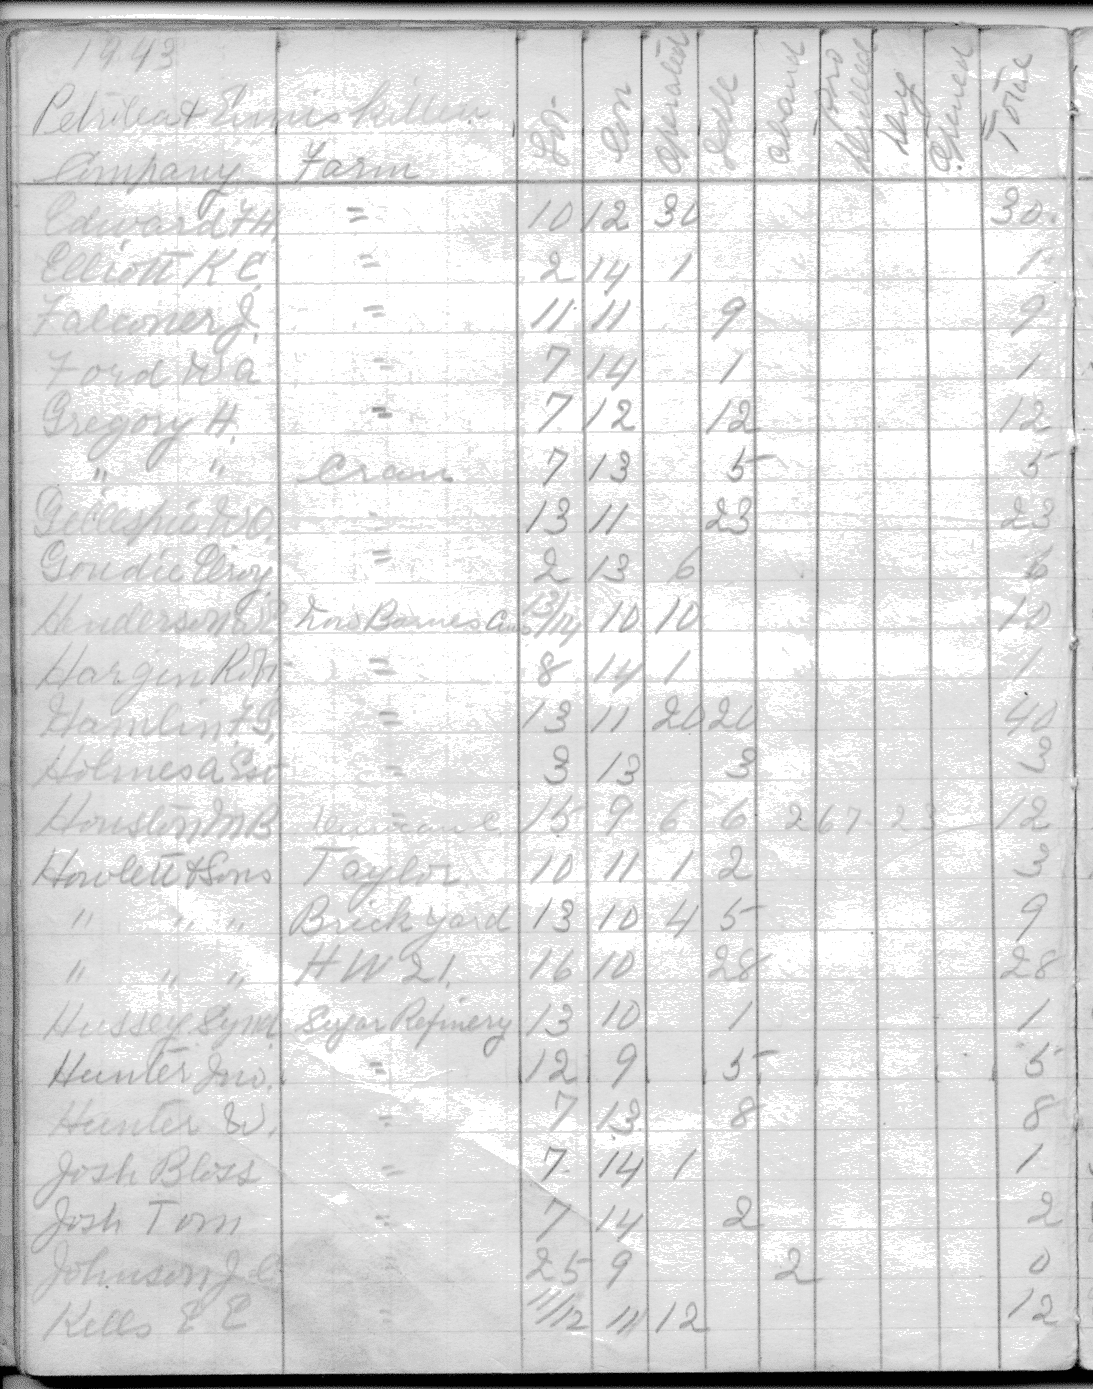 1943
Petrolea & Enniskillen
Company Farm Lot Con Operated Idle Aband Pro Drilled Dry Opened Total
Edward F H. " 10 12 30 30
Elliott K C. " 2 14 1 1
Falconer J. " 11 11 9 9
Ford W a " 7 14 1 1
Gregory H. " 7 12 12 12
" " Cran 7 13 5 5
Gillespie W O. " 13 11 23 23
Goudie Elroy. " 2 13 6 6
Henderson Barnes 13/14 10 10 10
Hargin Robt " 8 14 1 1
Hamlin F S. " 13 11 20 20 40
Holmes a " 3 13 3 3
Houston M B 15 9 6 6 2 67 23 12
Howlett & Sons Taylor. 10 11 1 2 3
" " " Brick yard 13 10 4 5 9
" " " H W 21. 16 10 28 28
Hussey Refinery 13 10 1 1
Hunter Jno. " 12 9 5 5
Hunter W. " 7 13 8 8
Josh Bloss " 7 14 1 1
Josh Tom " 7 14 2 2
Johnson J. C " 25 9 2 0
Kells E E " 11/12 11 12 12